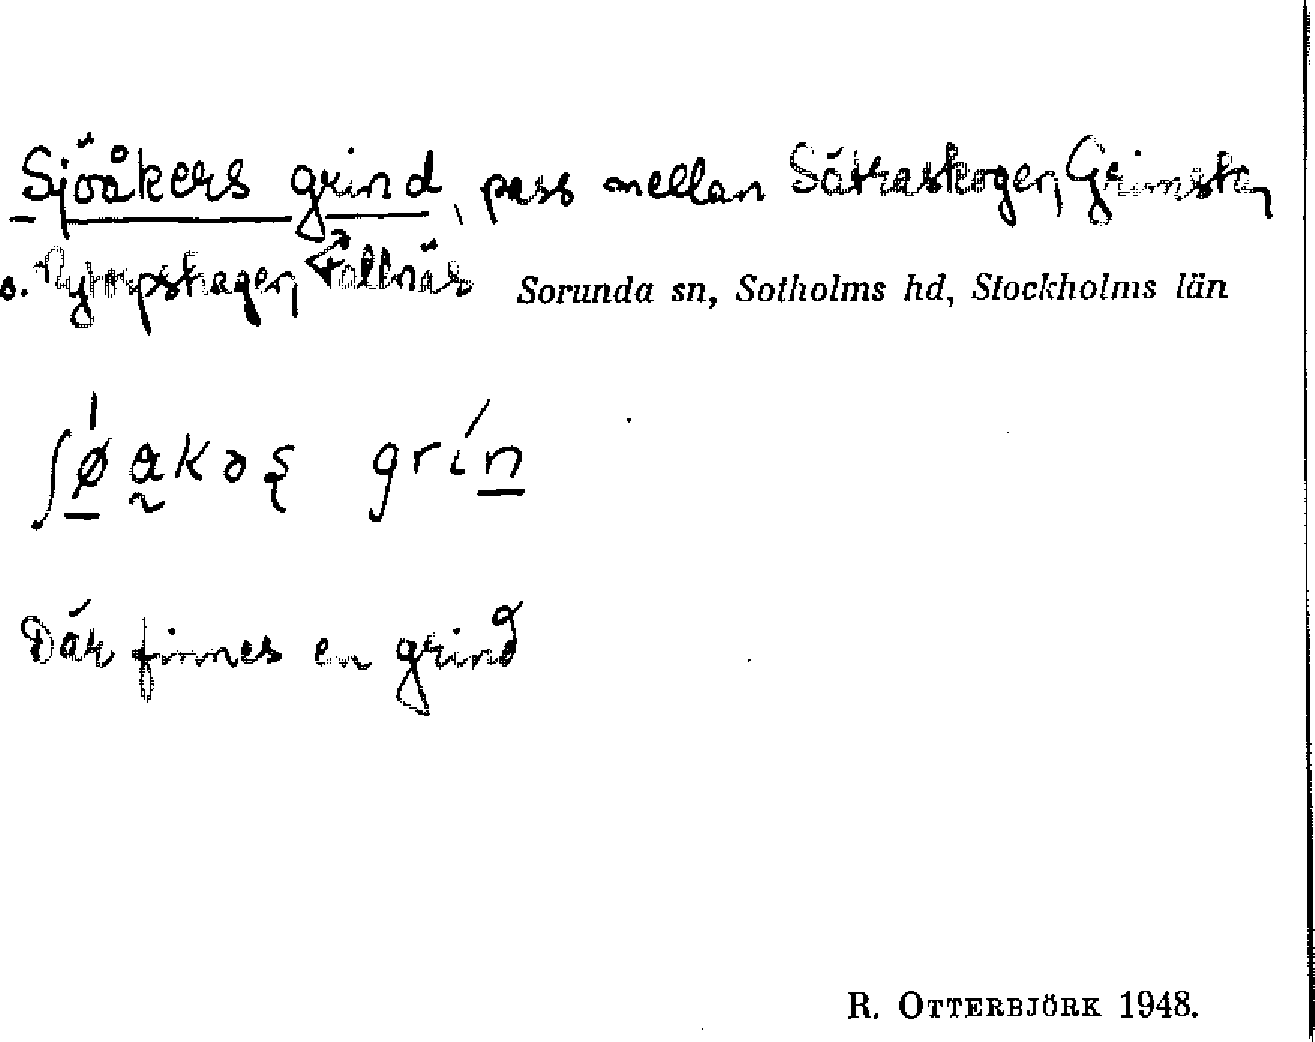 Sjöåkers grind, pass mellan Sätraskogen, Grimsta,
o. Fållnäs Sorunda sn, Sotholms hd, Stockholms län
ʃøakəs grin
Där finnes en grind
R. OTTERBJÖRK 1948.